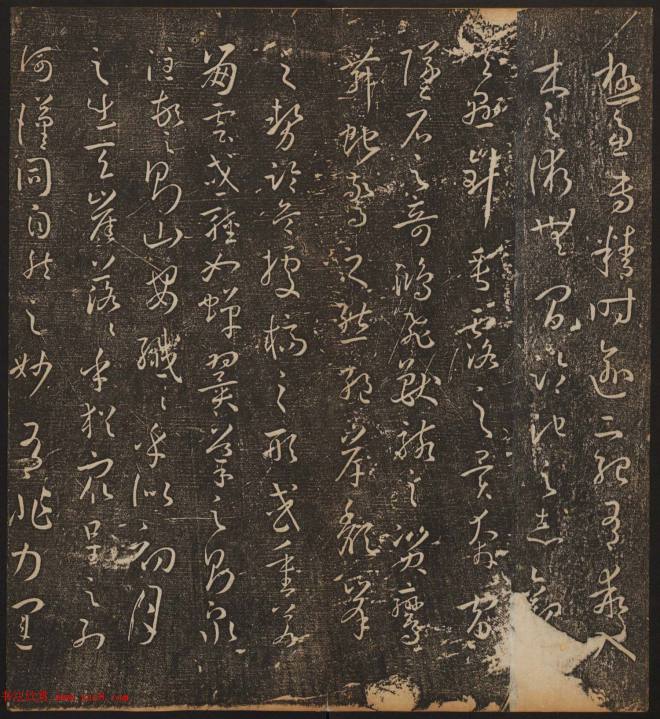 極慮專精時逾二紀有乖入
木之術無間臨池之志觀
夫懸針垂露之異奔雷
墜石之奇鴻飛獸駭之資鸞
舞蛇驚之態絕岸頹峯
之勢臨危據槁之形或重若
崩雲或輕如蟬翼導之則泉
注頓之則山安纖〻乎似初月
之出天崖落〻乎猶衆星之列
河漢同自然之妙有非力運
书法欣赏 www.yac8.com